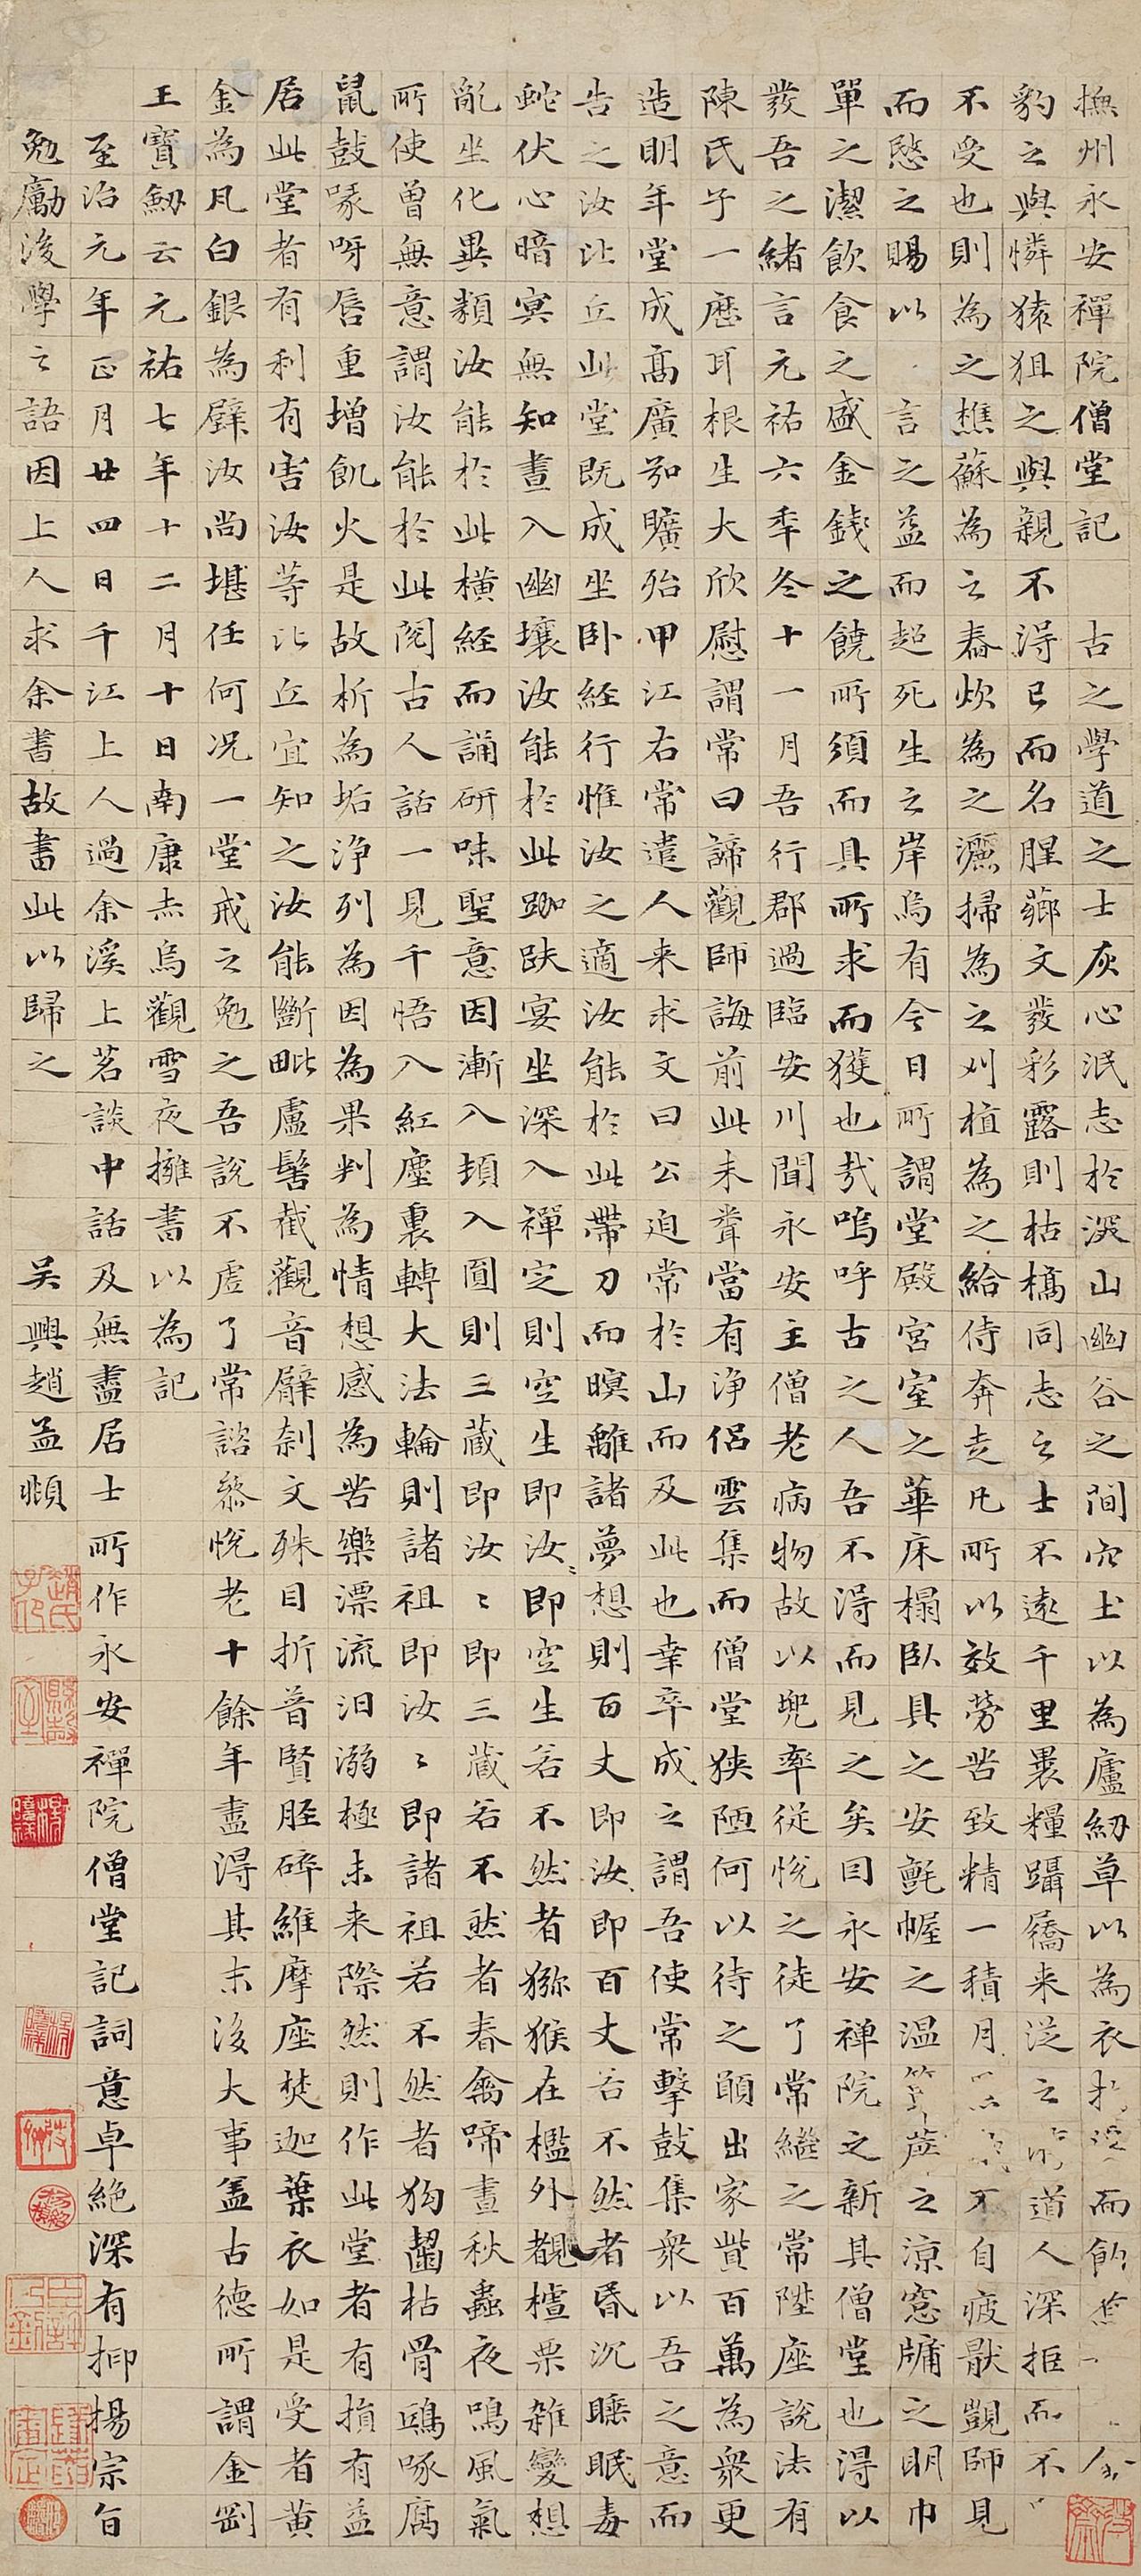 撫州永安禪院僧堂記 古之學道之士灰心泯志於深山幽谷之間穴土以為廬紉草以為衣而飲
豹之與憐猿狙之與親不得已而名腥薌文發彩露則枯槁同志之士不遠千里裹糧躡屩来從之道人深拒而不
不受也則為之樵蘇為之舂炊為之灑掃為之刈植為之給侍奔走凡所以效勞苦致精一積月不自疲厭覬師見
而愍之賜以言之益而超死生之岸烏有今日所謂堂殿宮室之華床榻臥具之安氈幄之温簟之涼窓牖之明巾
單之潔飲食之盛金錢之饒所須而具所求而獲也哉嗚呼古之人吾不得而見之矣因永安禪院之新其僧堂也得以
發吾之緒言元祐六年冬十一月吾行郡過臨安川聞永安主僧老病物故以兜率從悅之徒了常繼之常陞座說法有
陳氏子一歷耳根生大欣慰謂常曰諦觀師誨前此未聞當有淨侶雲集而僧堂狹陋何以待之願出家貲百萬為衆更
造明年堂成高廣如曠殆甲江右常遣人来求文曰公迫常於山而及此也幸卒成之謂吾使常擊鼓集衆以吾之意而
告之汝比丘此堂既成坐卧經行惟汝之適汝能於此帶刀而暝離諸夢想則百丈即汝即百丈若不然者昏沉睡眠毒
蛇伏心暗寞無知晝入幽壤汝能於此跏趺宴坐深入禪定則空生即汝〻即空生若不然者猕猴在檻外覩樝栗雜變想
亂坐化異類汝能於此橫經而誦研味聖意因漸入頓入圓則三藏即汝〻即三藏若不然者春禽啼晝秋蟲夜鳴風氣
所使曾無意謂汝能於此閱古人話一見千悟入紅塵裏轉大法輪則諸祖即汝〻即諸祖若不然者狗齧枯骨鴟啄腐
鼠鼓喙呀唇重增飢火是故析為垢淨列為因為果判為情想感為苦樂漂流汩溺極未来際然則作此堂者有損有益
居此堂者有利有害汝等比丘宜知之汝能斷毗盧髻截觀音臂刳文殊目折普賢脛碎維摩座焚迦葉衣如是受者黄
金為凡白銀為壁汝尚堪任何况一堂戒之勉之吾說不虚了常諮叅悅老十餘年盡得其末後大事盖古德所謂金剛
王寶劔云元祐七年十二月十日南康赤烏觀雪夜擁書以為記
至治元年正月廿四日千江上人過余溪上茗談中話及無盡居士所作永安禪院僧堂記詞意卓絶深有抑揚宗旨
勉勵後學之語因上人求余書故書此以歸之 吴興趙孟頫